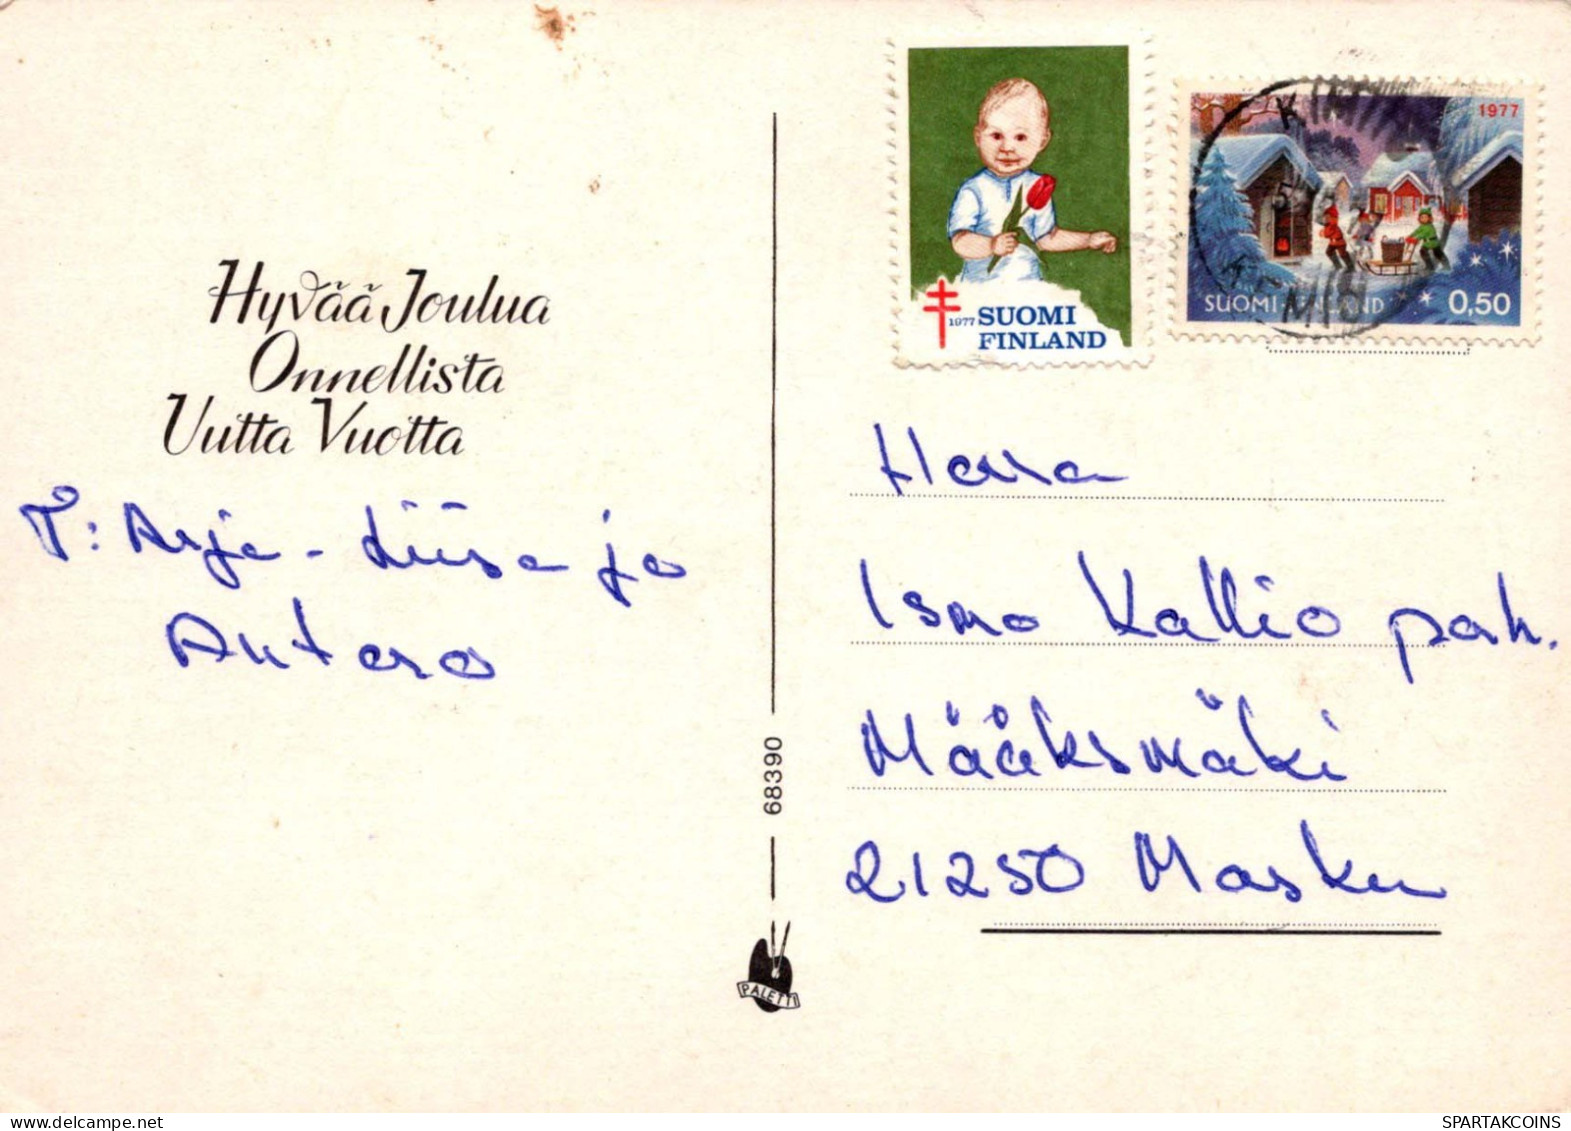 Hyvää Joulua
Onnellista
Uutta Vuotta
T: Arja-Liisa ja
Antero
68390
PALETTI
1977 SUOMI
FINLAND
1977
SUOMI-FINLAND 0,50
Herra
Ismo Kallio perh.
Määksmäki
21250 Masku
SPARTAKCOINS